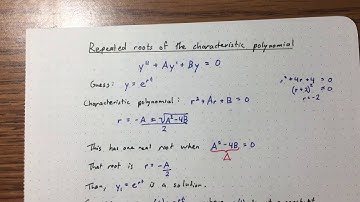 Repeated roots of the characteristic polynomial
y'' + Ay' + By = 0
Guess: y = e^rt
r² + 4r + 4 = 0
(r+2)² = 0
r = -2
Characteristic polynomial: r² + Ar + B = 0
r = -A ± √A²-4B / 2
This has one real root when A² - 4B = 0
Δ
That root is r = -A/2
Then, y₁ = e^rt is a solution.